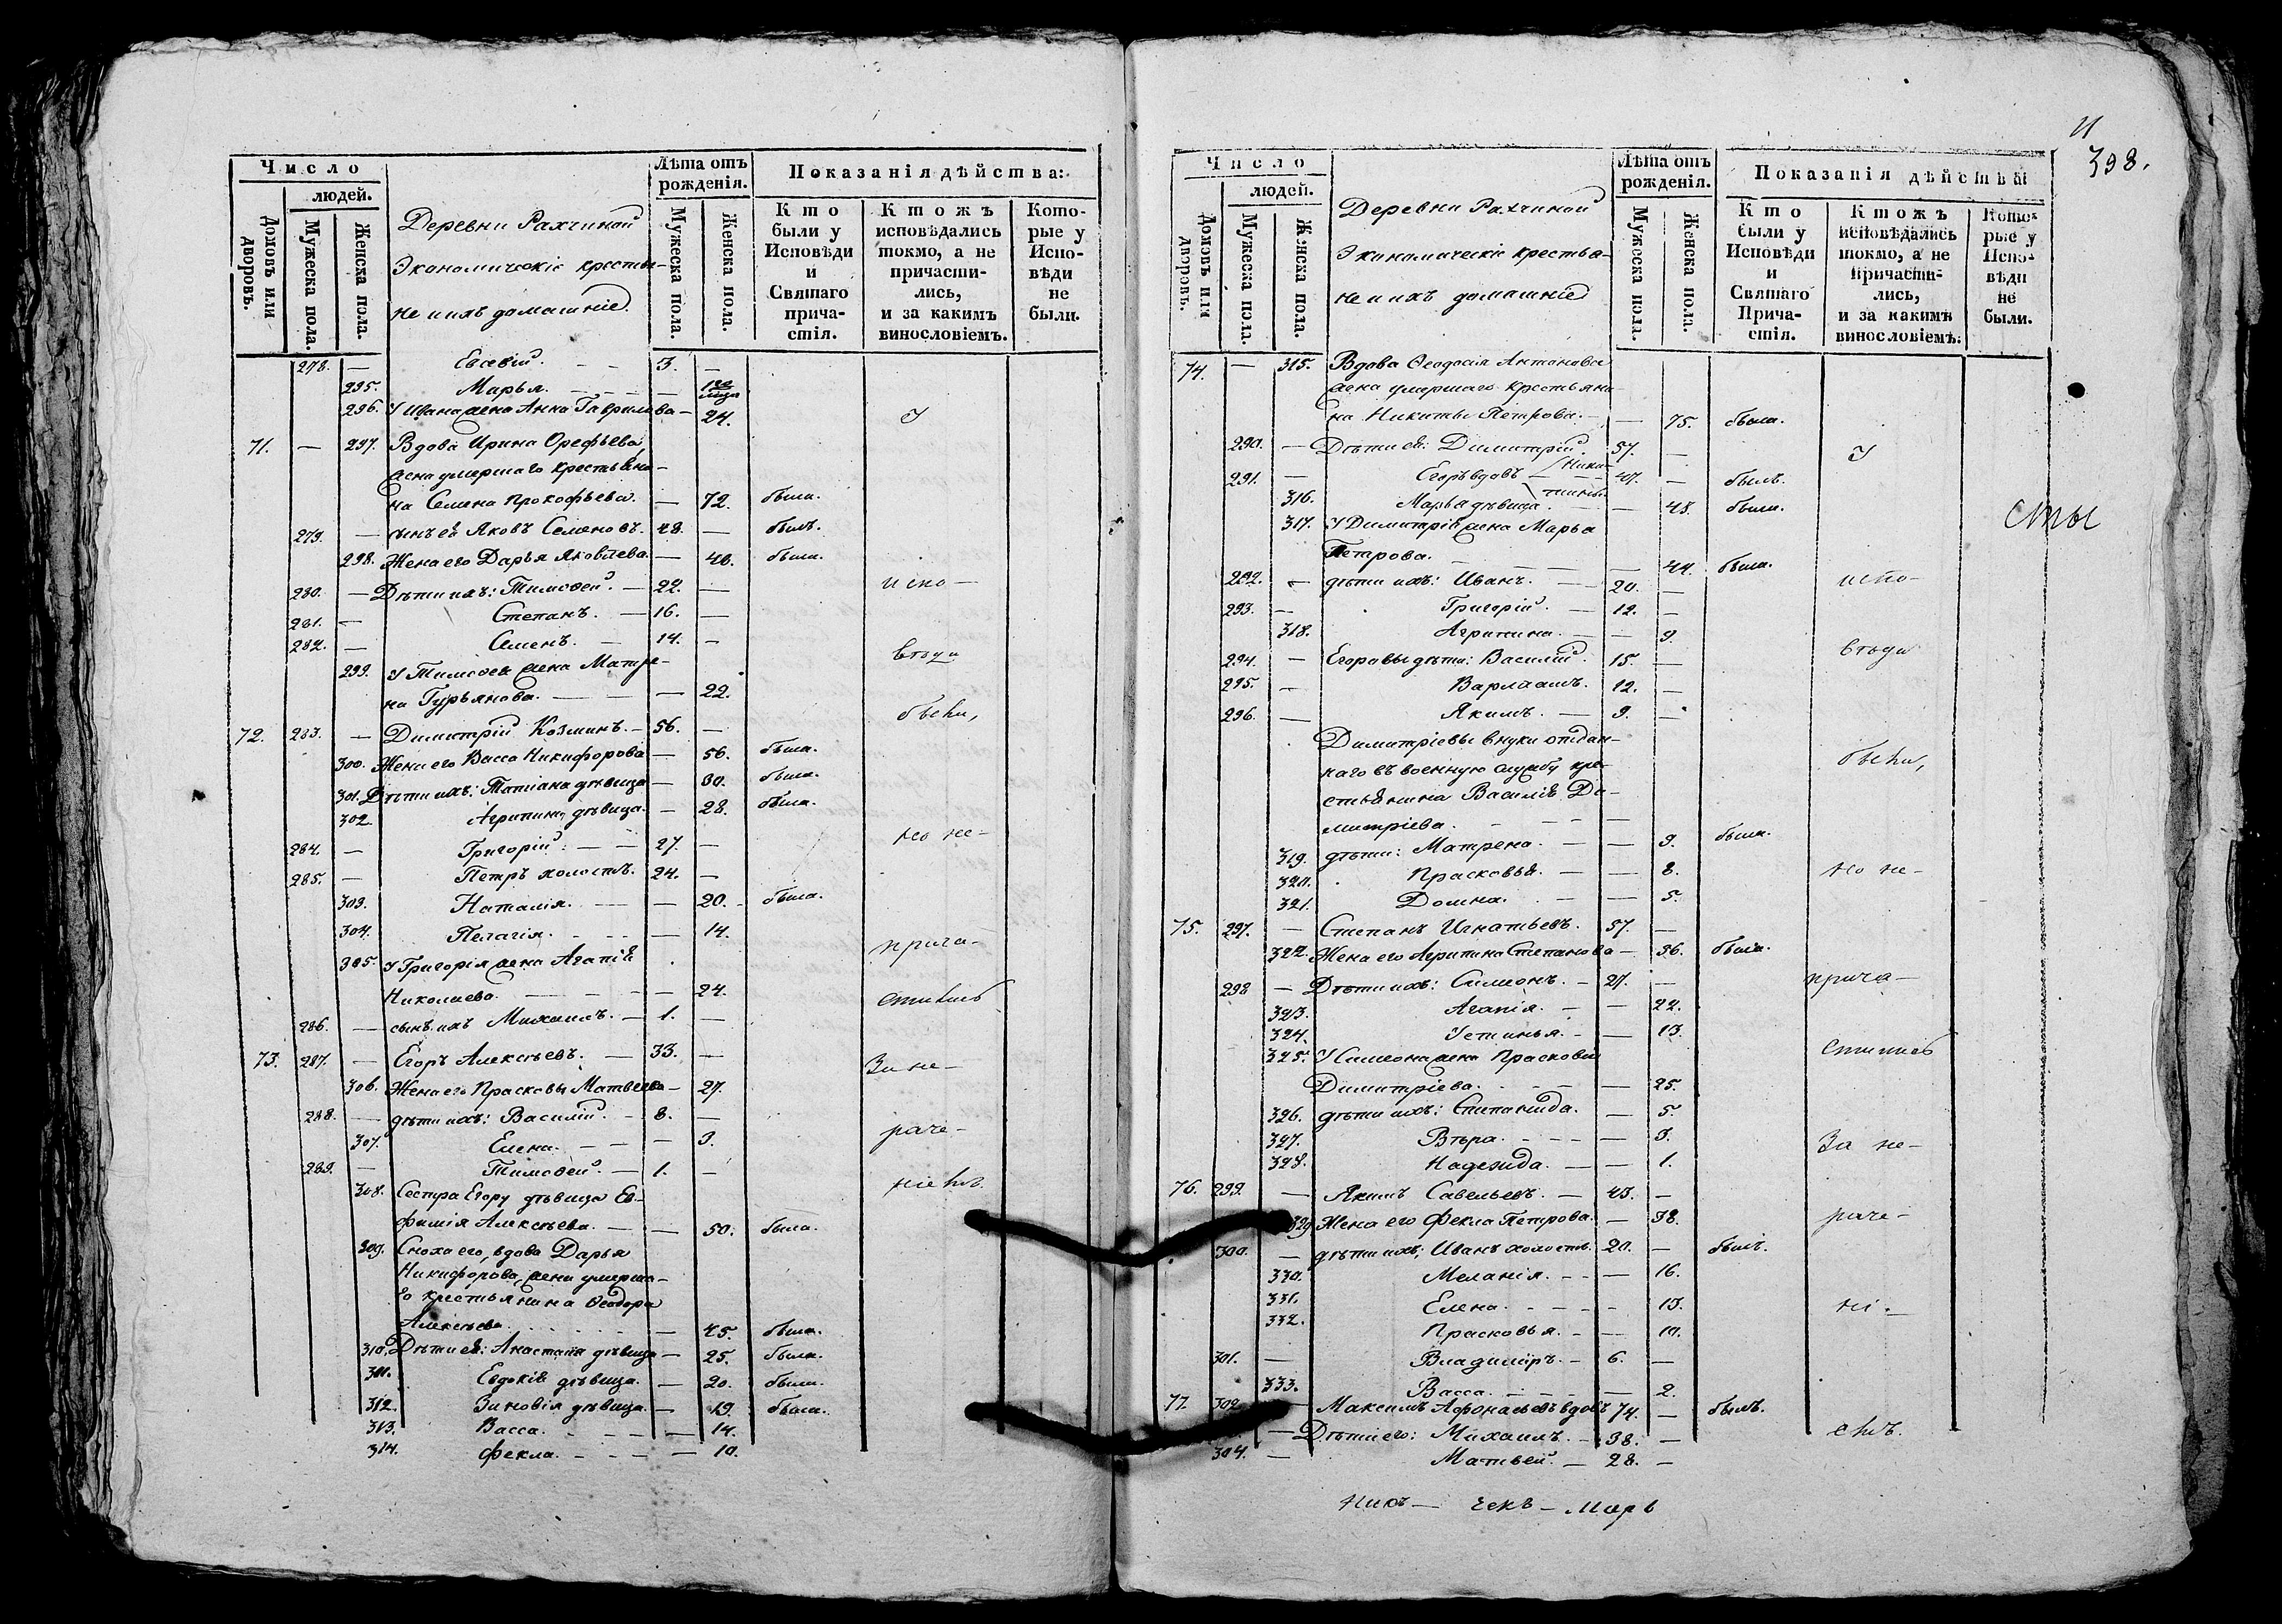 Число
людей.
Домовъ или дворовъ.
Мужеска пола.
Женска пола.
Деревни Рахчиной
Экономическіе крестья-
не и ихъ домашніе
Лѣта отъ рожденія.
Мужеска пола.
Женска пола.
Показанія дѣйства:
Кто были у Исповѣди и Святаго причастія.
Ктожъ исповѣдались токмо, а не причастились, и за какимъ винословіемъ.
Которые у Исповѣди не были.
278. — Евсевій. — 3. —
295. Марья. —
296. У Ивана жена Анна Гаврилова — 24.
71. — 297. Вдова Ирина Орефьева
жена умершаго крестьяни-
на Семена Прокофьева. — 72. была.
279. — сынъ ея Яковъ Семеновъ. 48. — былъ.
298. Жена его Дарья Яковлева. — 40. была.
280. — Дѣти ихъ: Тимоѳей. — 22. — испо-
281. — Степанъ. — 16. —
282. — Семенъ. — 14. —
299. У Тимоѳея жена Матре-
на Гурьянова. — 22.
72. 283. — Димитрій Козминъ. — 56. —
300. Жена его Васса Никифорова — 56. была.
301. Дѣти ихъ: Татіана дѣвица — 30. была.
302. Агрипина дѣвица. — 28. была.
но не-
284. — Григорій. — 27. —
285. — Петръ холостъ. 24. —
303. Наталія. — 20. была.
304. Пелагія. — 14.
прича-
305. У Григорія жена Агапія
Николаева. — 24.
286. — сынъ ихъ Михаилъ. — 1. —
73. 287. — Егоръ Алексѣевъ. — 33. —
За не-
306. Жена его Прасковья Матвѣева — 27.
288. — дѣти ихъ: Василій. — 8. —
раче-
307. Елена. — 3.
289. — Тимоѳей. — 1. —
308. Сестра Егору дѣвица Ев-
фимія Алексѣева. — 50. была.
309. Сноха его, вдова Дарья
Никифорова, жена умерша-
го крестьянина Ѳеодора
Алексѣева. — 45. была.
310. Дѣти ея: Анастасія дѣвица — 25. была.
311. Евдокія дѣвица. — 20. была.
312. Зиновія дѣвица. — 19. была.
313. Васса. — 14.
314. Фекла. — 10.
398.
Число
людей.
Домовъ или дворовъ.
Мужеска пола.
Женска пола.
Деревни Рахчиной
Экономическіе крестья-
не и ихъ домашніе
Лѣта отъ рожденія.
Мужеска пола.
Женска пола.
Показанія дѣйства
Кто были у Исповѣди и Святаго Причастія.
Ктожъ исповѣдались токмо, а не причастились, и за какимъ винословіемъ.
Которые у Исповѣди не были.
74. — 315. Вдова Ѳеодосія Антонова
жена умершаго крестьяни-
на Никиты Петрова. — 75. была.
290. — Дѣти ея: Димитрій. 57. —
291. — Егоръ вдовъ — 47. — былъ.
316. Марья дѣвица. — 48. была.
317. У Димитрія жена Марья
Петрова. — 44. была.
292. — дѣти ихъ: Иванъ. — 20. — испо-
293. — Григорій. — 12. —
318. Агрипина. — 9.
294. — Егоровы дѣти: Василій. 15. —
295. — Варлаамъ. 12. —
296. — Якимъ. — 9. —
Димитріевы внуки отдан-
наго въ военную службу кре-
стьянина Василія Ди-
митріева.
319. дѣти: Матрена. — 9. была.
320. Прасковья. — 8. но не-
321. Домна. — 5.
75. 297. — Степанъ Игнатьевъ. 57. —
322. Жена его Агрипина Степанова — 36. была.
298 — Дѣти ихъ: Симеонъ. — 27. — прича-
323. Агапія. — 22.
324. Устинья. — 13.
325. У Симеона жена Прасковья
Димитріева. — 25.
326. дѣти ихъ: Степанида. — 5.
327. Вѣра. — 3. За не-
328. Надежда. — 1.
76. 299. — Якимъ Савельевъ. — 43. —
329 Жена его Фекла Петрова. — 38. раче-
300. — дѣти ихъ: Иванъ холостъ. 20. — былъ.
330. Меланія. — 16.
331. Елена. — 13.
332. Прасковья. — 10.
301. — Владиміръ. — 6. —
333. Васса. — 2.
77. 302 — Максимъ Афонасьевъ вдовъ 74. — былъ.
— Дѣти его: Михаилъ. — 38. —
304. — Матвей. — 28. —